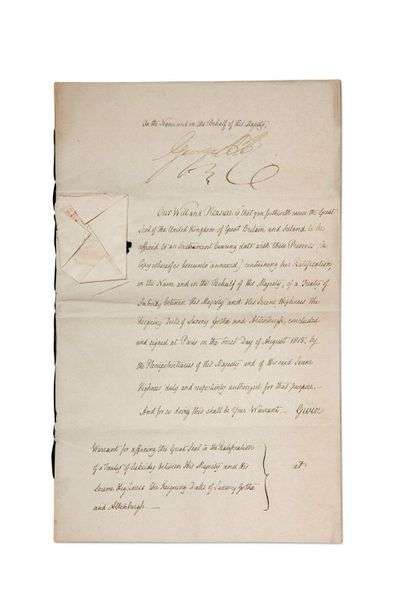 In the Name and on the Behalf of His Majesty,
George P R
Our Will and Pleasure is that you forthwith cause the Great
Seal of the United Kingdom of Great Britain and Ireland to be
affixed to an Instrument bearing date with these Presents (a
Copy whereof is hereunto annexed) containing his Ratification,
in the Name and on the Behalf of His Majesty, of a Treaty of
Subsidy between His Majesty and His Serene Highness the
Reigning Duke of Saxony Gotha and Altenburgh, concluded
and signed at Paris on the first day of August 1815, by
the Plenipotentiaries of His Majesty and of His said Serene
Highness duly and respectively authorized for that purpose.
And for so doing this shall be Your Warrant. Given
Warrant for affixing the Great Seal to the Ratification
of a Treaty of Subsidy between His Majesty and His
Serene Highness the Reigning Duke of Saxony Gotha
and Altenburgh.
at